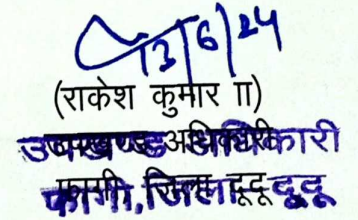 13/6/24
(राकेश कुमार II)
उपखण्ड अधिकारी
फागी, जिला दूदू